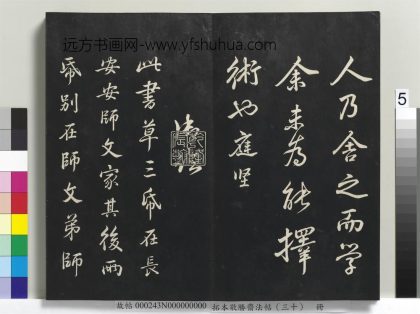 远方书画网-www.yfshuhua.com
人乃舍之而学
余未为能擇
術也庭坚
此書草三紙在長
安安師文家其後兩
紙別在師文弟師
5
故帖 000243N000000000 拓本敬勝齋法帖（三十） 冊